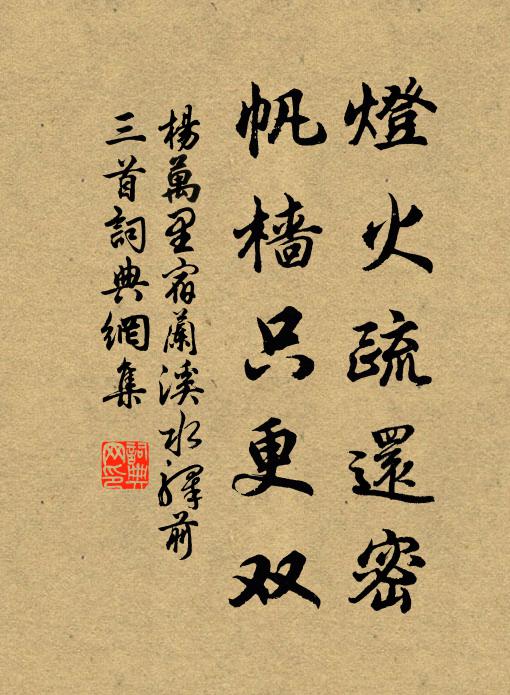 燈火疏還密
帆檣只更双
楊萬里宿蘭溪水驛前
三首詞典網集
詞典
网印